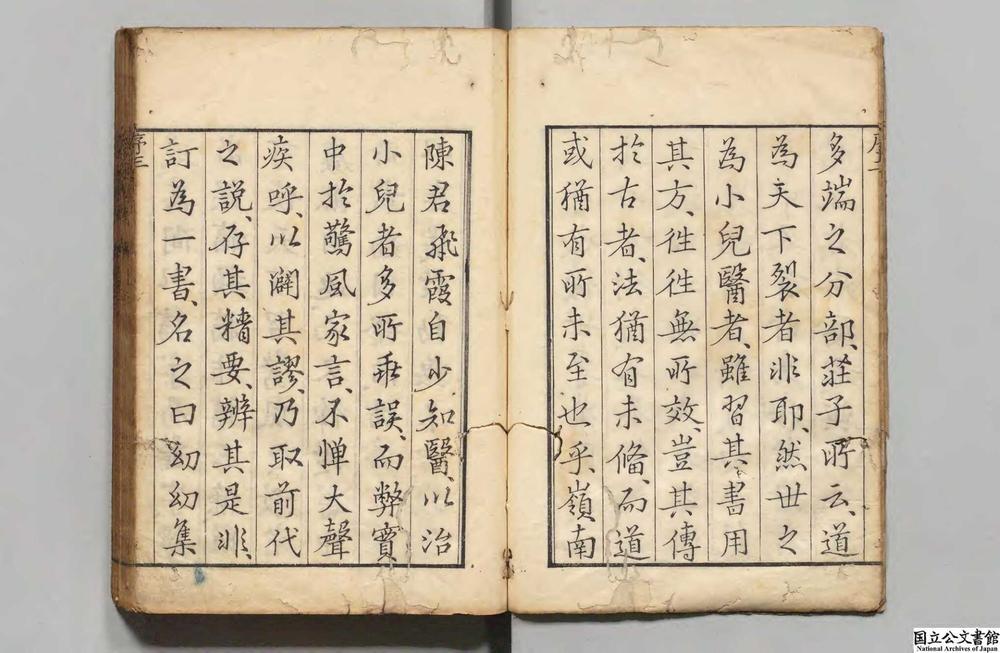 多端之分部、莊子所云、道
為天下裂者非耶、然世之
為小兒醫者、雖習其書用
其方、徃徃無所效、豈其傳
於古者、法猶有未備、而道
或猶有所未至也乎、嶺南
陳君飛霞自少知醫、以治
小兒者多所乖誤、而弊實
中於驚風家言、不憚大聲
疾呼、以闢其謬、乃取前代
之說、存其精要、辨其是非、
訂為一書、名之曰幼幼集
序三
国立公文書館
National Archives of Japan